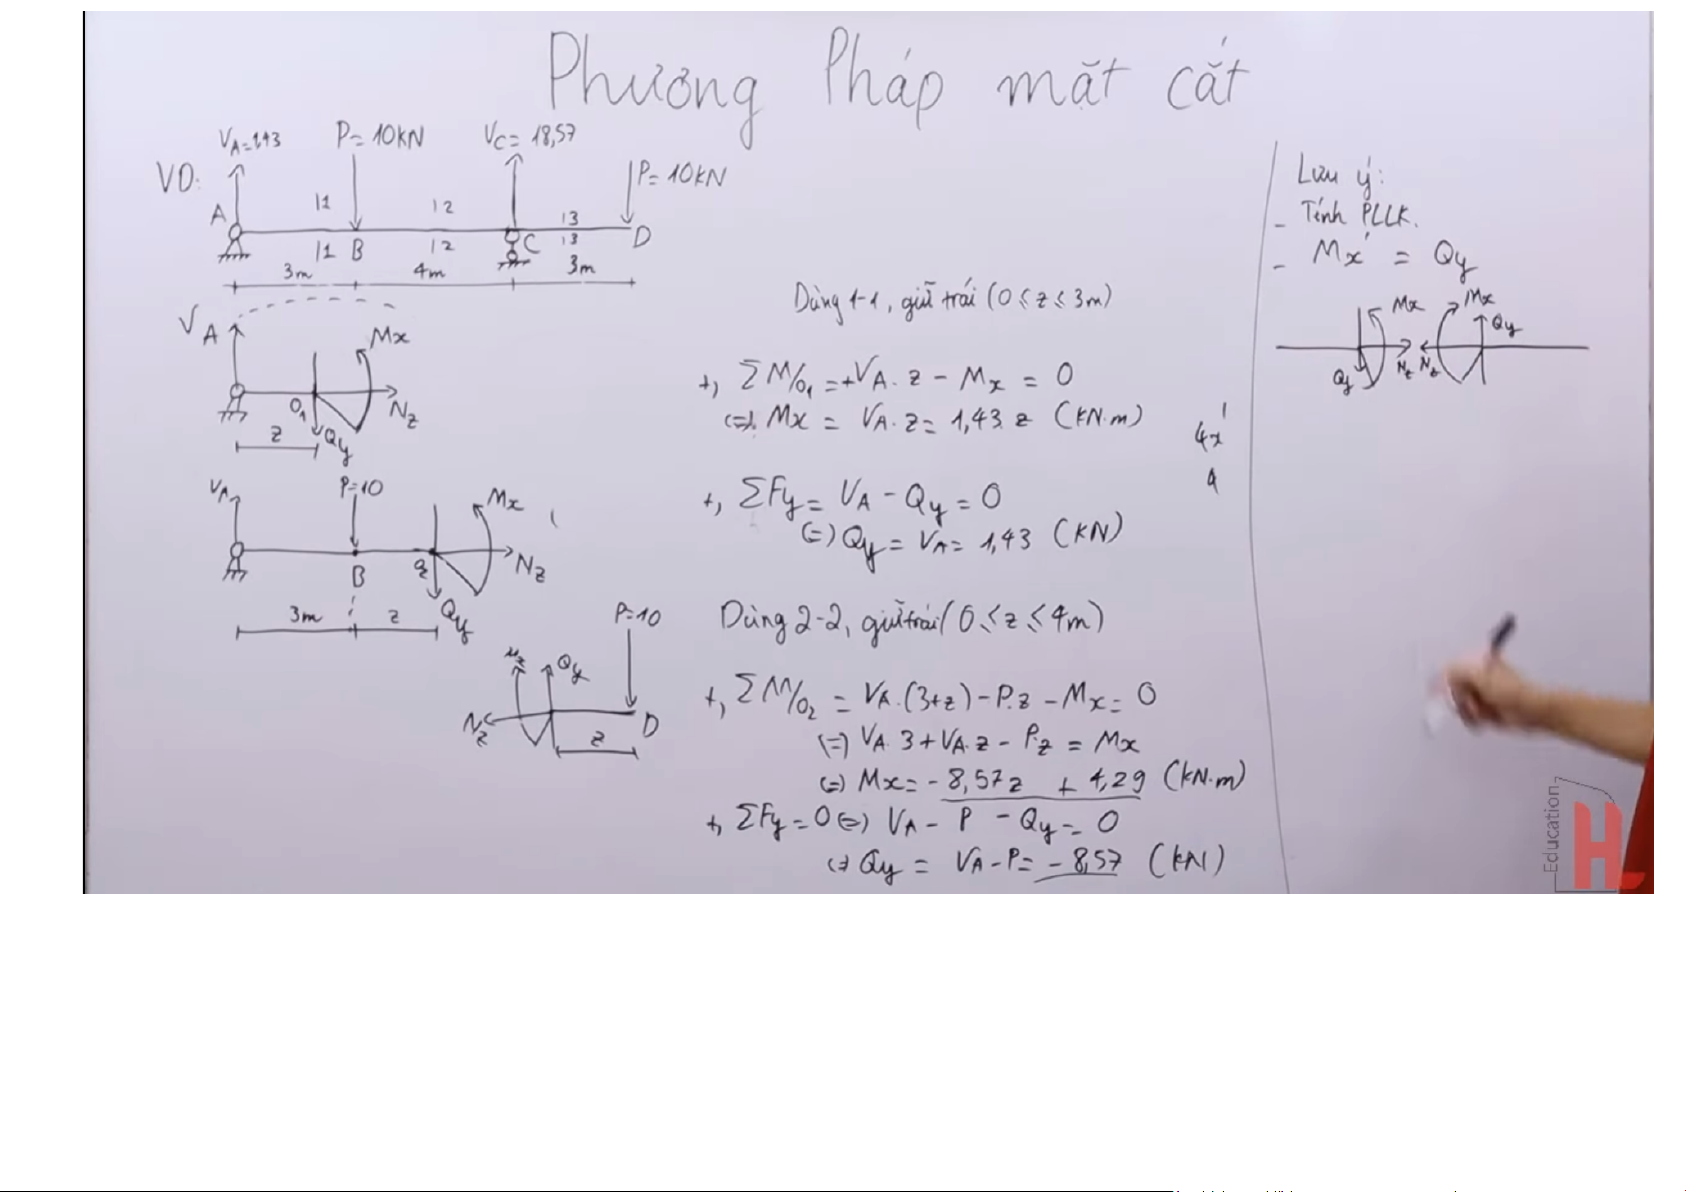 Phương Pháp mặt cắt
VD:
VA=1,43
P=10kN
VC=18,57
P=10kN
A
|1
|2
|3
|1
B
|2
C
|3
D
3m
4m
3m
VA
Mx
O1
Nz
z
Qy
VA
P=10
Mx
(
B
Nz
3m
z
Qy
P=10
Qy
Nz
D
z
Dùng 1-1, giữ trái (0 ≤ z ≤ 3m)
+, ΣM/O1 = +VA. z - Mx = 0
(=) Mx = VA. z = 1,43. z (kN.m)
+, ΣFy = VA - Qy = 0
(=) Qy = VA = 1,43 (kN)
Dùng 2-2, giữ trái (0 ≤ z ≤ 4m)
+, ΣM/O2 = VA.(3+z) - P.z - Mx = 0
(=) VA. 3 + VA. z - P.z = Mx
(=) Mx = -8,57z + 4,29 (kN.m)
+, ΣFy = 0 (=) VA - P - Qy = 0
(=) Qy = VA - P = -8,57 (kN)
4x'
4
Lưu ý:
- Tính PLLK.
- Mx' = Qy
Mx
Mx
Qy
Qy
Nz
Nz
Education
H